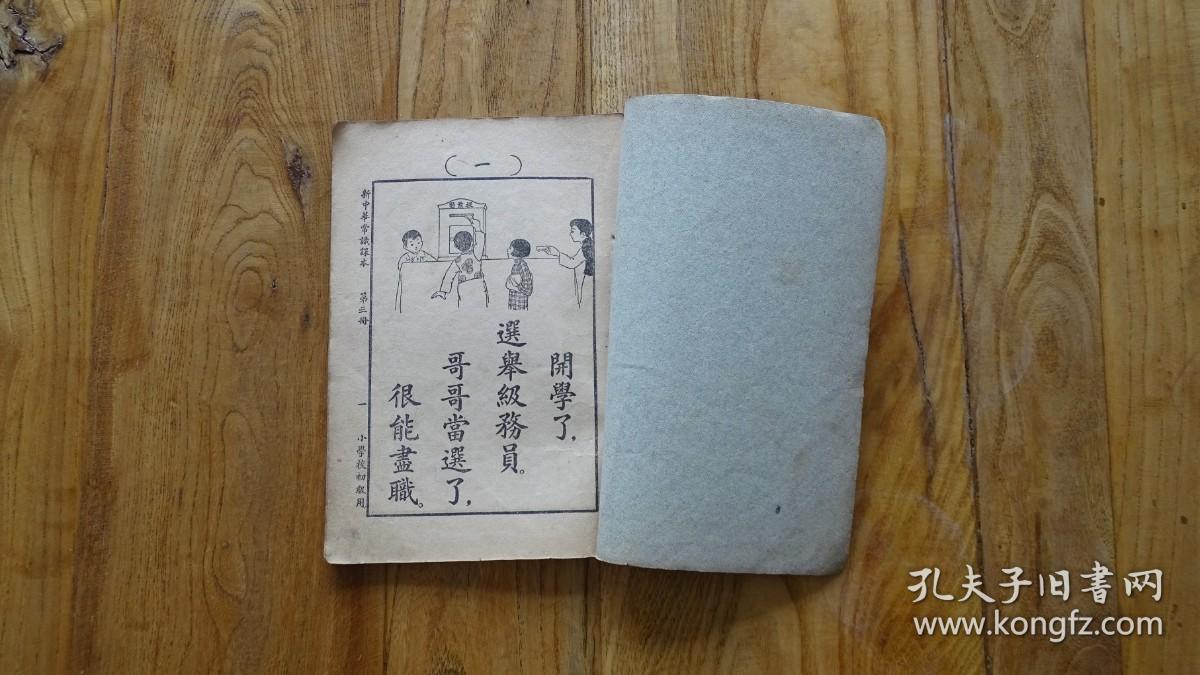 （一）
開學了，
選舉級務員。
哥哥當選了，
很能盡職。
新中華常識課本 第三冊 一 小學校初級用
孔夫子旧書网
www.kongfz.com